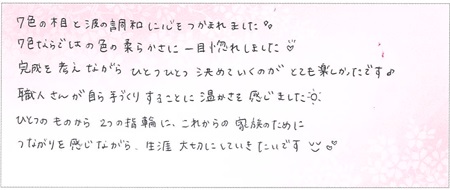 7色の木目と涙の調和に心をつかまれました
7色ならではの色の柔らかさに一目惚れしました
完成を考えながら ひとつひとつ 決めていくのが とても楽しかったです♪
職人さんが自ら手づくりすることに温かさを感じました
ひとつのものから 2つの指輪に、これからの家族のために
つながりを感じながら、生涯 大切にしていきたいです